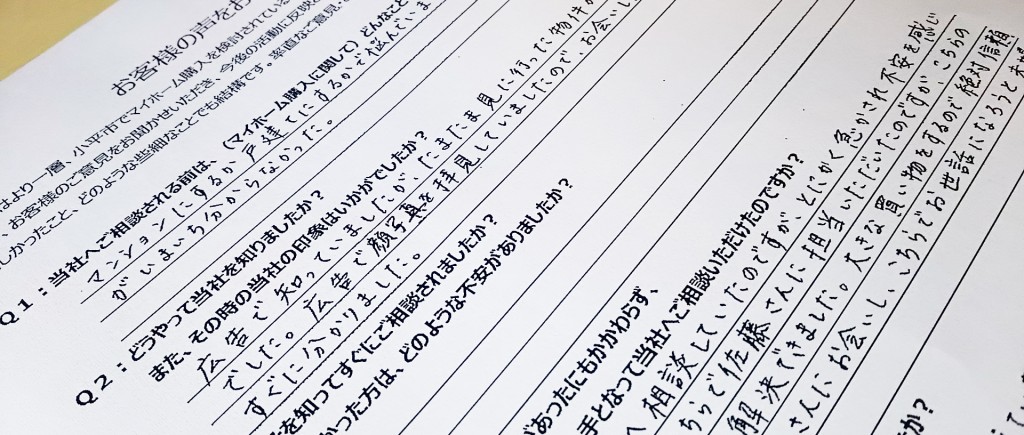 お客様の声をお
はより一層、小平市でマイホーム購入を検討されている
、お客様のご意見をお聞かせいただき、今後の活動に反映
しかったこと、どのような些細なことでも結構です。率直なご意見
Q1：当社へご相談される前は、(マイホーム購入に関して)どんなこと
マンションにするか戸建てにするかで悩んでいま
がいまいち分からなかった。
Q2：どうやって当社を知りましたか？
また、その時の当社の印象はいかがでしたか？
広告で知っていましたが、たまたま見に行った物件が
でした。広告で顔写真を拝見していましたので、お会いし
すぐに分かりました。
を知ってすぐにご相談されましたか？
かった方は、どのような不安がありましたか？
があったにもかかわらず、
手となって当社へご相談いただけたのですか？
へ相談していたのですが、とにかく急かされ不安を感じ
ちらで佐藤さんに担当いただいたのですがこちらの
解決できました。大きな買い物をするので絶対信頼
さんにお会いし、こちらでお世話になろうと
か？